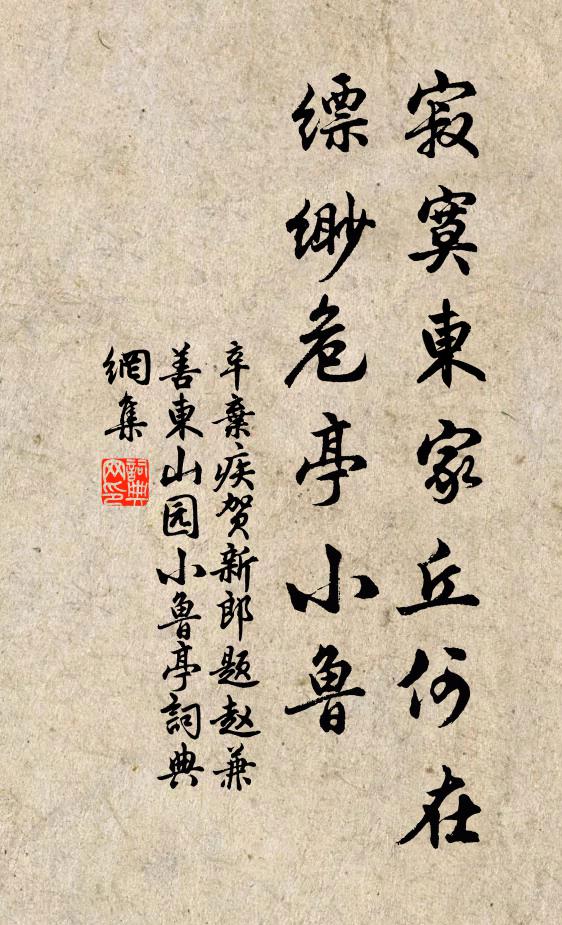 寂寞東家丘何在
缥缈危亭小魯
辛棄疾贺新郎题赵兼
善東山园小魯亭詞典
網集
詞典
网印